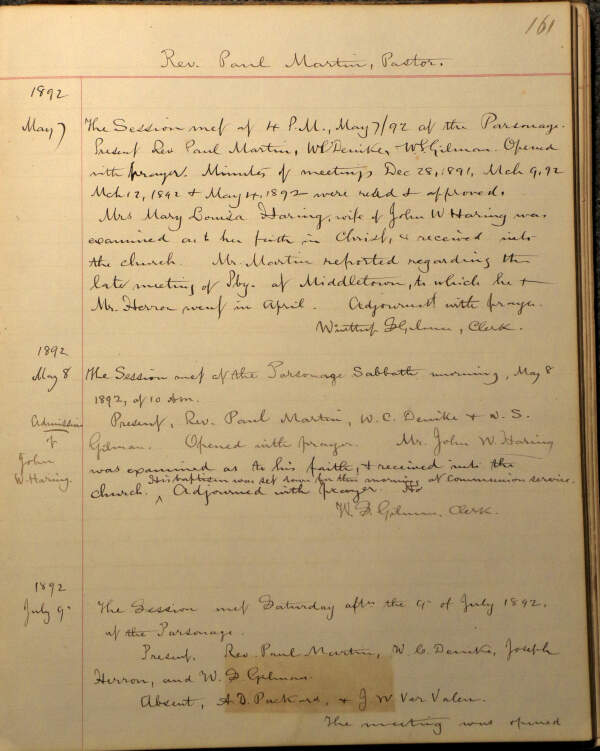 161
Rev. Paul Martin, Pastor.
1892
May 7 The Session met at 4 P.M., May 7/92 at the Parsonage.
Present Rev Paul Martin, W C Demike, W S Gilman. Opened
with prayer. Minutes of meetings Dec 28, 1891, Mch 9, 92
Mch 12, 1892 & May 4, 1892 were read & approved.
Mrs Mary Louisa Haring, wife of John W Haring was
examined as to her faith in Christ, & received into
the church. Mr. Martin reported regarding the
late meeting of Pby. at Middletown, to which he &
Mr. Herron went in April. Adjourned with prayer.
Winthrop S Gilman, Clerk.
1892
May 8 The Session met at the Parsonage Sabbath morning, May 8
1892, at 10 A.m.
Admission of John W. Haring.
Present, Rev. Paul Martin, W. C. Demike & W. S.
Gilman. Opened with prayer. Mr. John W. Haring
was examined as to his faith, & received into the
His baptism was set down for this morning at Communion service.
church. ^ Adjourned with prayer.
W. S Gilman, Clerk.
1892
July 9 The Session met Saturday aftn the 9 of July 1892.
at the Parsonage.
Present. Rev. Paul Martin, W. C. Demike, Joseph
Herron, and W. S Gilman.
Absent, A. D. Packard, & J W Van Valen.
The meeting was opened